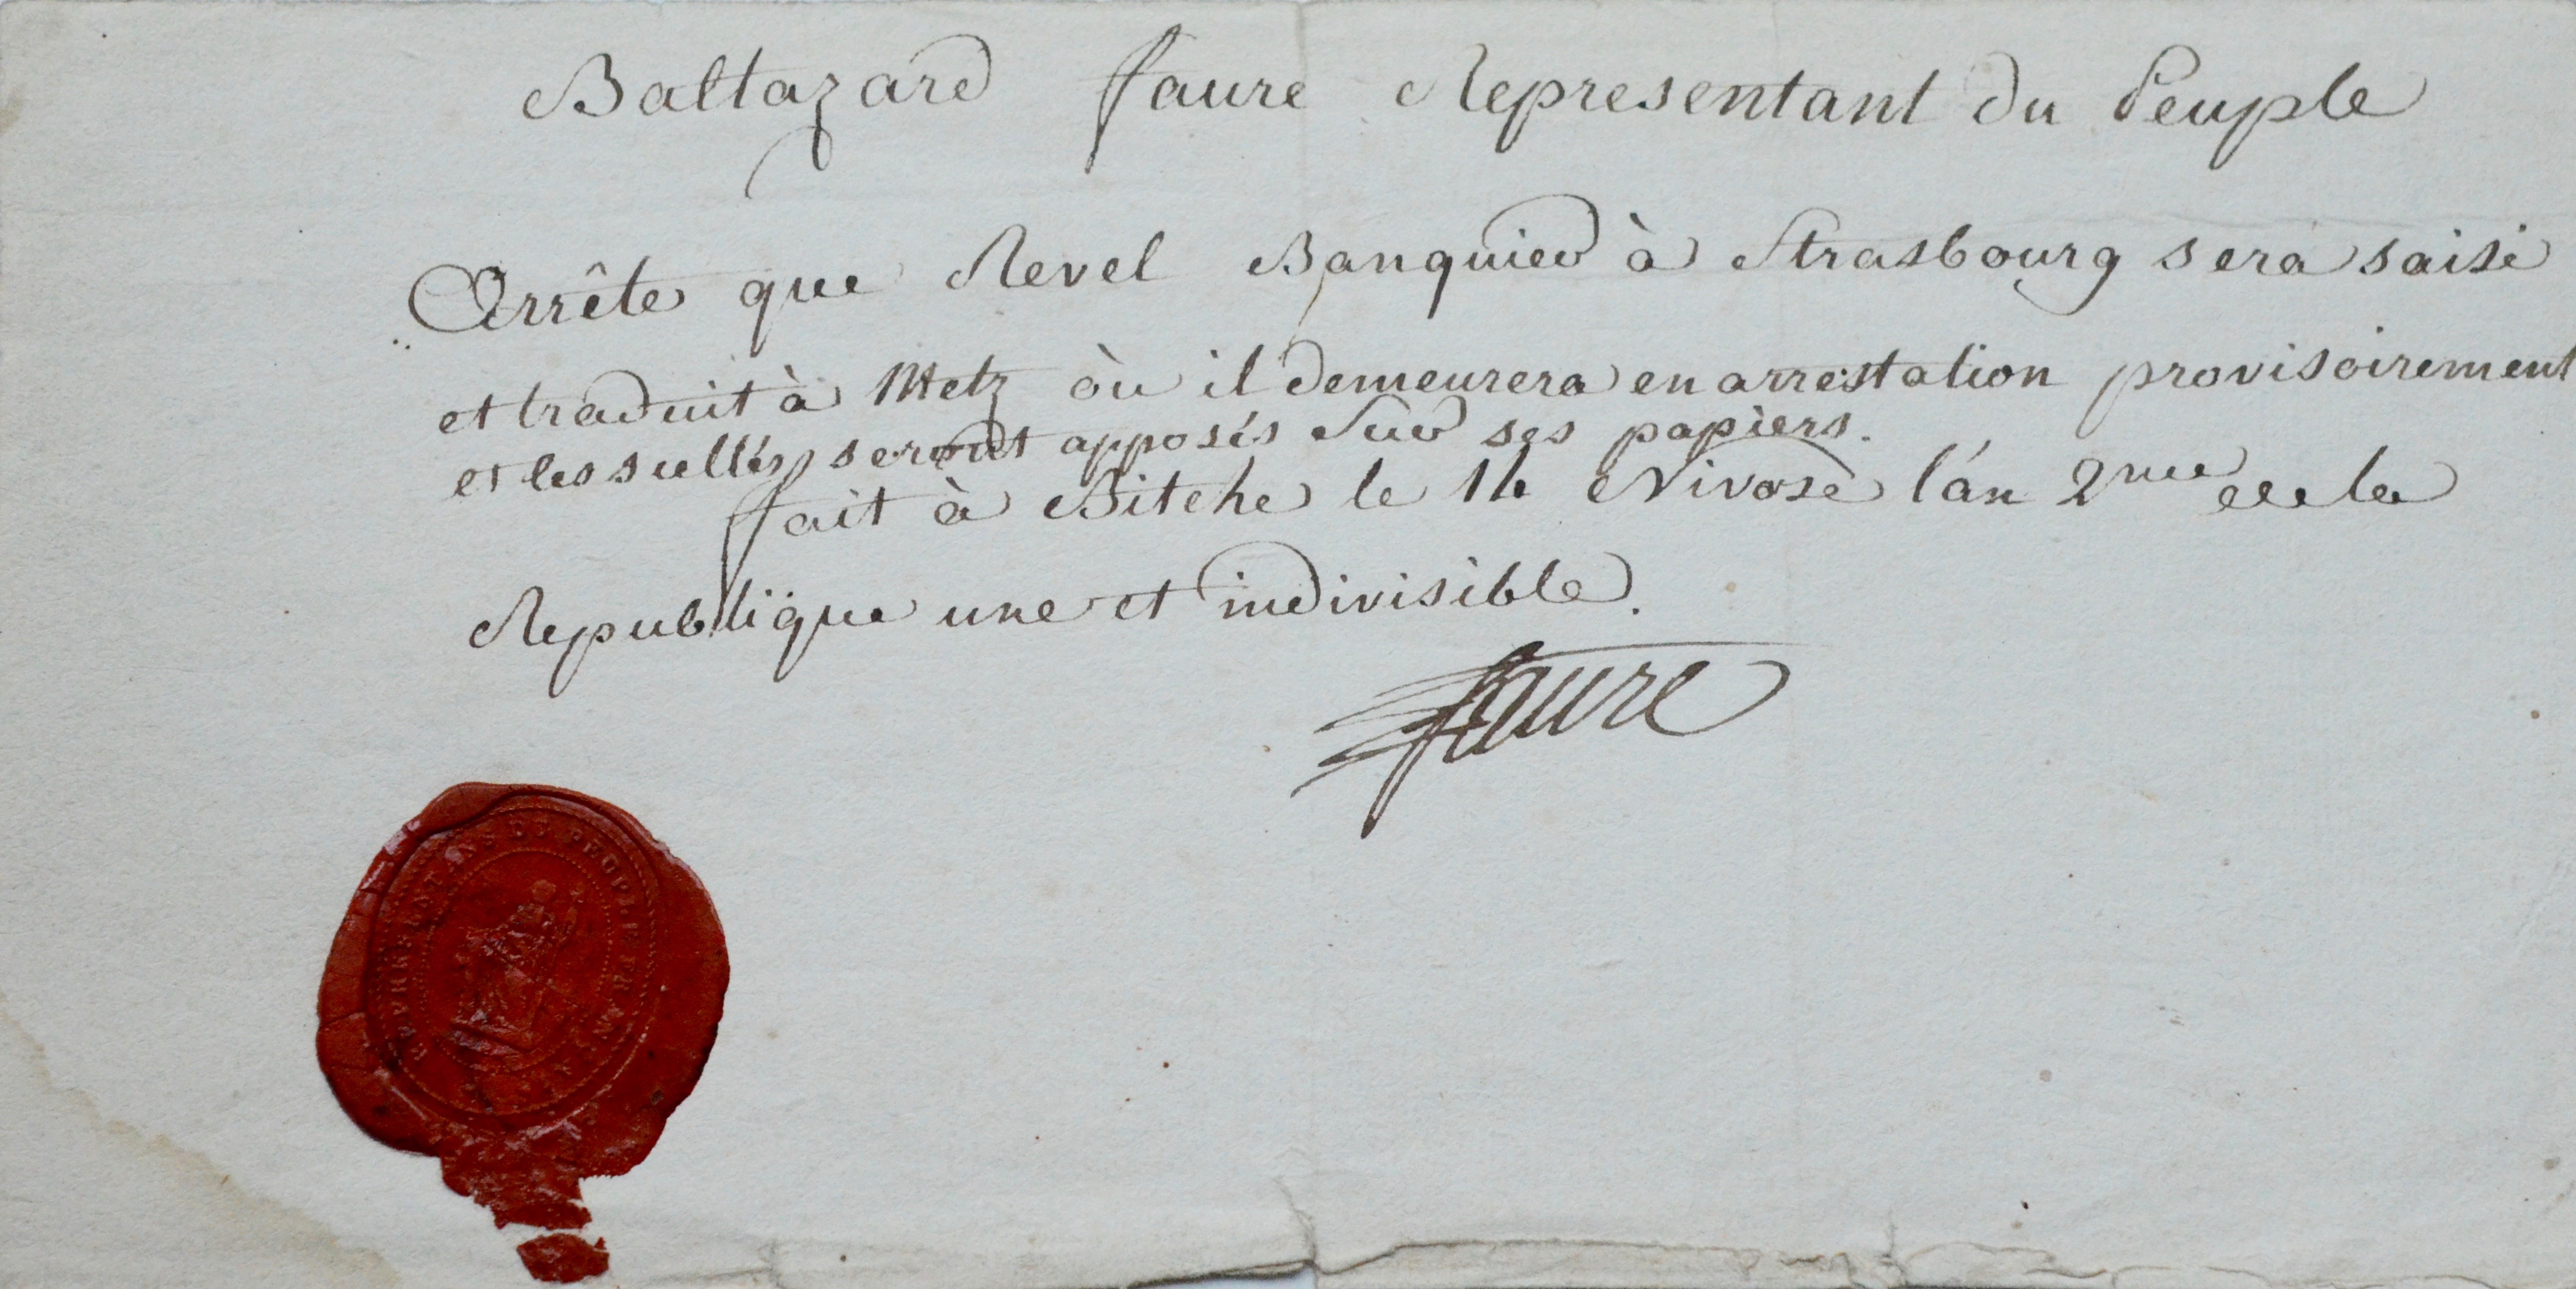 Baltazard faure Representant du Peuple
Arrête que Revel Banquier à Strasbourg sera saisi
et traduit à Metz òu il demeurera en arrestation provisoirement
et les scellés seront apposés sur ses papiers.
fait à Bitche le 14 Nivose l'an 2me de la
Republique une et indivisible.
faure
REPRESENTANS DU PEUPLE FRAN